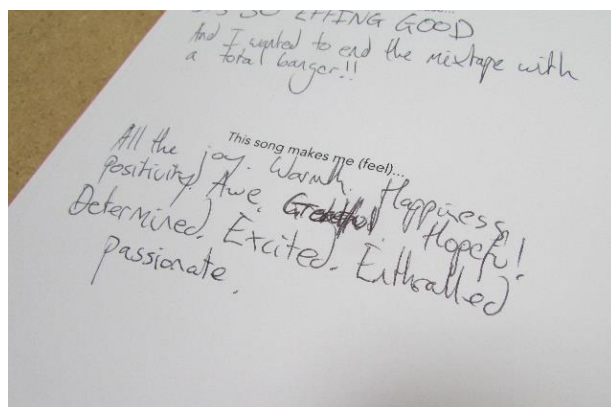 SO EFFING GOOD
And I wanted to end the mixtape with
a total banger!!
This song makes me (feel)...
All the joy. Warmth. Happiness
positivity. Awe. Hopeful!
Determined. Excited. Enthralled
passionate.